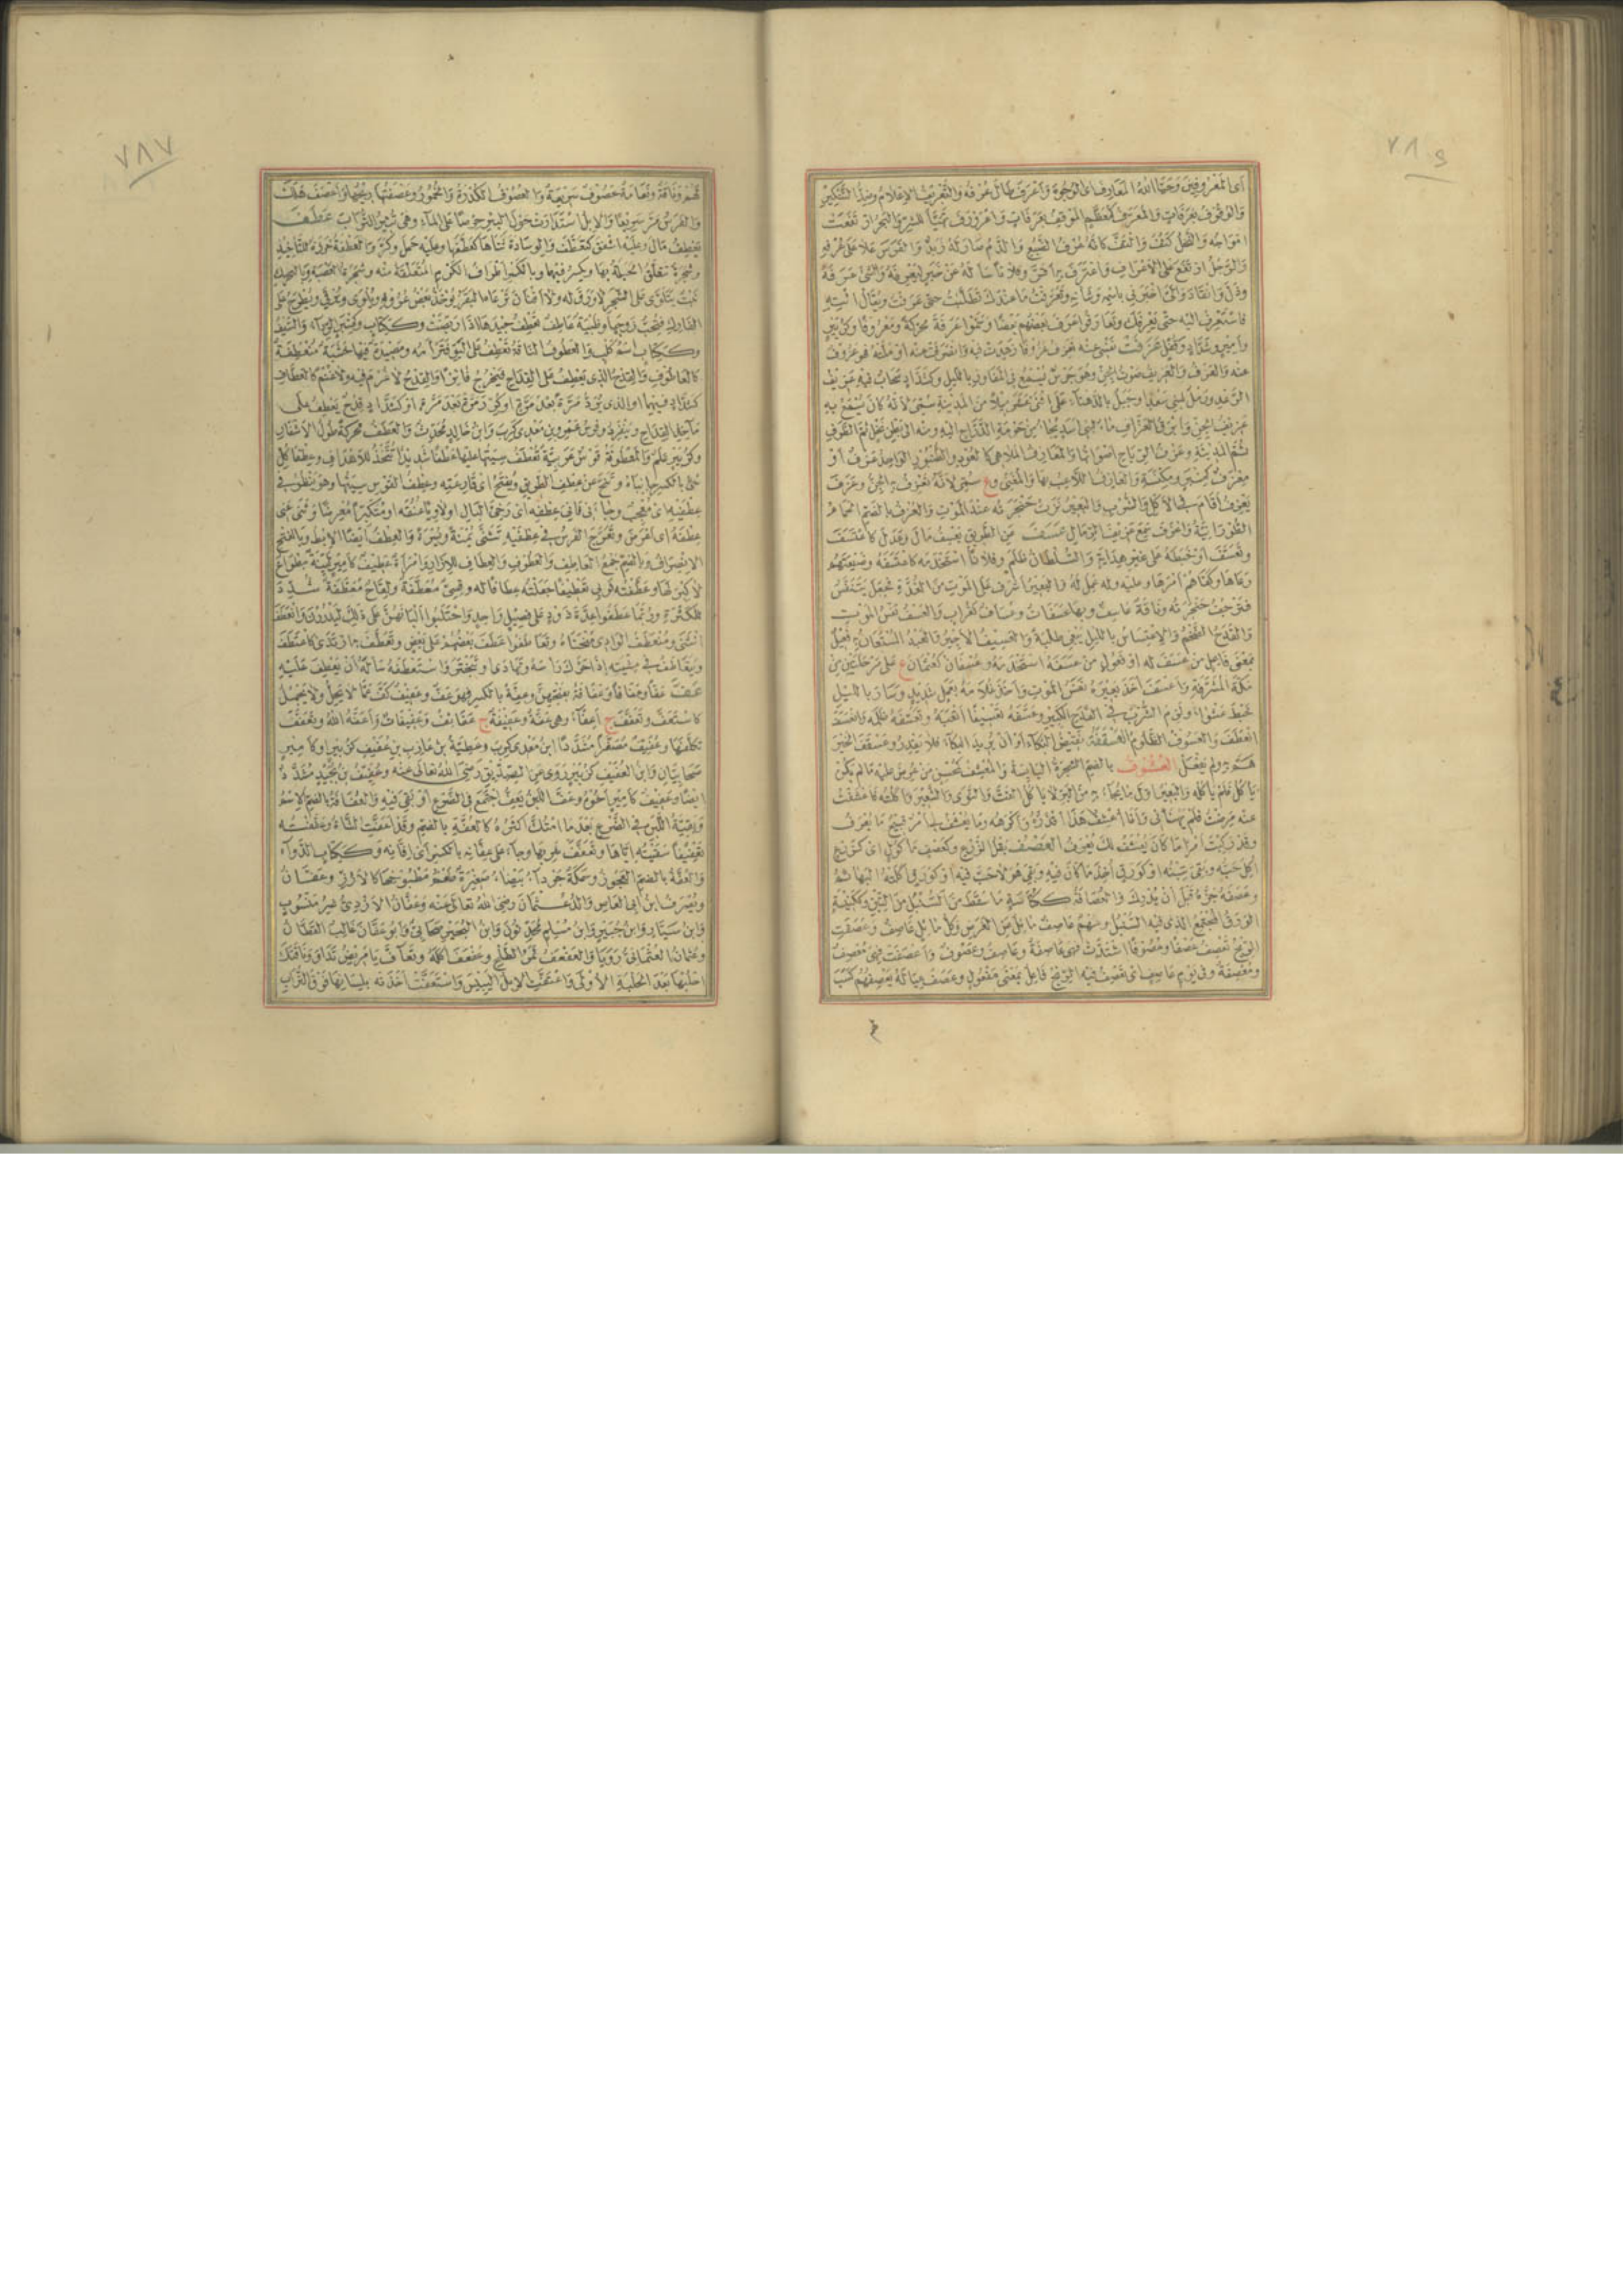 ٧٨٩
أى المعروفين وحيا الله المعارف أى الوجوه وأعرف طال عرفه والتعريف الإعلام وضد التنكير
والوقوف بعرفات والمعرف كمعظم الموقف بعرفات واعرورف تهيأ للشر والبحر ارتفعت
امواجه والنخل كثف والتف كأنه عرف الضبع والدم صار له زبد والفرس علا على عرفه
والرجل ارتفع على الأعراف واعترف به أقر وفلانا سأله عن خبر ليعرفه والشئ عرفه
وذل وانقاد والى اخبرنى باسمه وشأنه وتعرفت ما عندك تطلبت حتى عرفت ويقال ائته
فاستعرف اليه حتى يعرفك وتعارفوا عرف بعضهم بعضا وسموا عرفة محركة ومعروفا وكزبير
وأمير وشداد وكقفل عزفت نفسى عنه تعزف عزوفا زهدت فيه وانصرفت عنه أو ملته فهو عزوف
عنه والعزف والعزيف صوت الجن وهو جرس يسمع فى المفاوز بالليل وكشداد سحاب فيه عزيف
الرعد ورمل لبنى سعد او جبل بالدهناء على اثنى عشر ميلا من المدينة سمى لأنه كان يسمع به
عزيف الجن وأبرق العزاف ماء لبنى اسد يجاء من حومانة الدراج اليه ومنه الى بطن نخل ثم الطرف
ثم المدينة وعزف الرياح اصواتها والمعازف الملاهى كالعود والطنبور الواحد عزف أو
معزف كمنبر ومكنسة والعازف اللاعب بها والمغنى وع سمى لأنه تعزف به الجن وعزف
يعزف أقام فى الأكل والشرب والبعير نزت حنجرته عند الموت والعزف بالضم الحمام
الطورانية وأعزف سمع عزيف الرمال عسف عن الطريق يعسف مال وعدل كاعتسف
وتعسف أو خبطه على غير هداية والسلطان ظلم وفلانا استخدمه كاعتسفه وضيعتهم
رعاها وكفاهم أمرها وعليه وله عمل له والبعير أشرف على الموت من الغدة فجعل يتنفس
فترجف حنجرته وناقة عاسف وبها عسفات وعساف كغراب والعسف نفس الموت
والقدح الضخم والاعتساس بالليل يبغى طلبة والعسيف الأجير والعبد المستعان به فعيل
بمعنى فاعل من عسف له أو مفعول من عسفه استخدمه وعسفان كعثمان ع على مرحلتين من
مكة المشرفة وأعسف أخذ بعيره نفس الموت وأخذ غلامه بعمل شديد وسار بالليل
خبط عشواء ولزم الشرب فى القدح الكبير وعسفه تعسيفا اتعبه وتعسفه ظلمه وانعسف
انعطف والعسوف الظلوم العسقفة نقيض البكاء أو أن يريد البكاء فلا يقدر وعسقف الخير
هم به ولم يفعل العشوف بالضم الشجرة اليابسة والمعشف كمحسن من عرض عليه ما لم يكن
يأكل فلم يأكله والبعير أول ما يجاء به من البر لا يأكل القت والنوى والشعير وأكلته فاعشفت
عنه مرضت فلم يهنأنى وأنا أعشف هذا أقذره وأكرهه وما يعشف لى أمر قبيح ما يعرف
وقد ركبت أمرا ما كان يعشف لك يعرف العصف بقل الزرع وكعصف مأكول أى كزرع
أكل حبه وبقى تبنه أو كورق أخذ ما كان فيه وبقى هو لا حب فيه أو كورق أكلته البهائم
وعصفه جزه قبل أن يدرك والعصافة ككناسة ما سقط من السنبل من التبن وككنيسة
الورق المجتمع الذى فيه السنبل وسهم عاصف مائل عن الغرض وكل مائل عاصف وعصفت
الريح تعصف عصفا وعصوفا اشتدت فهى عاصفة وعاصف وعصوف وأعصفت فهى معصف
ومعصفة وفى يوم عاصف أى تعصف فيه الريح فاعل بمعنى مفعول وعصف عياله يعصفهم كسب
٧٨٧
لهم وناقة ونعامة عصوف سريعة والعصوف الكدرة والخمور وعصفتها ريحها وأعصف هلك
والفرس مر سريعا والإبل استدارت حول البئر حرصا على الماء وهى تثير التراب عطف
يعطف مال وعليه أشفق كتعطف والوسادة ثناها كعطفها وعليه حمل وكر والعطفة خرزة للتأخيذ
وشجرة تتعلق الحبلة بها ويكسر فيهما وبالكسر اطراف الكرم المتعلقة منه وشجرة العصبة وبالتحريك
نبت يتلوى على الشجر لا ورق له ولا افنان ترعاه البقر يؤخذ بعض عروقه ويلوى ويرقى ويطرح على
الفارك فتحب زوجها وظبية عاطف تعطف جيدها اذا ربضت وككتاب وكمنبر الرداء والسيف
وككتاب اسم كلب والعطوف الناقة تعطف على البو فترأمه ومصيدة فيها خشبة منعطفة
كالعاطوف والقدح الذى يعطف على القداح فيخرج فائزا والقدح لا غرم فيه ولا غنم كالعطاف
كشداد فيهما او الذى يرد مرة بعد مرة او كرر مرة بعد مرة او كشداد قدح يعطف على
مآخذ القداح وينفرد وفرس عمرو بن معدى كرب وابن خالد محدث والعطف محركة طول الأشفار
وكزبير علم والمعطوفة قوس عربية تعطف سيتها عليها عطفا شديدا تتخذ للأهداف وعطفا كل
شئ بالكسر جانباه وتنح عن عطف الطريق ويفتح أى قارعته وعطف القوس سيتها وهو ينظر فى
عطفيه أى معجب وجاء ثانى عطفه أى رخى البال او لاويا عنقه او متكبرا معرضا وثنى عنى
عطفه أى أعرض وتعوج الفرس فى عطفيه تثنى يمنة ويسرة والعطف ايضا الإبط وبالفتح
الانصراف وبالضم جمع العاطف والعطوف والعطاف للإزار وامرأة عطيف كأمير لينة مطواع
لا كبر لها وعطفته ثوبى تعطيفا جعلته عطافا له وقسى معطفة ولقاح معطفة شدد
للكثرة وربما عطفوا عدة ذود على فصيل واحد واحتلبوا ألبانهن على ذلك ليدررن وانعطف
انثنى ومنعطف الوادى منحناه وتعاطفوا عطف بعضهم على بعض وتعطف به ارتدى كاعتطف
ويتعاطف فى مشيته إذا حرك رأسه وتهادى وتبختر واستعطفه سأله أن يعطف عليه
عف عفا وعفافا وعفافة بفتحهن وعفة بالكسر فهو عف وعفيف كف عما لا يحل ولا يجمل
كاستعف وتعفف ج أعفاء وهى عفة وعفيفة ج عفائف وعفيفات وأعفه الله وتعفف
تكلفها وعفيف مصغرا مشددا ابن معدى كرب وعطية بن عازب بن عفيف كزبير او كأمير
صحابيان وابن العفيف كزبير روى عن الصديق رضى الله تعالى عنه وعفيف بن بجيد مشدد
ايضا وعفيف كأمير أخوه وعف اللبن يعف اجتمع فى الضرع أو بقى فيه والعفافة بالضم الاسم
وبقية اللبن فى الضرع بعد ما امتك اكثره كالعفة بالضم وقد اعفت الشاة وعففته
تعفيفا سقيته إياها وتعفف شربها وجاء على عفانه بالكسر أى إفانه وككتاب الدواء
والعفة بالضم العجوز وسمكة جرداء بيضاء صغيرة طعم مطبوخها كالأرز وعفان
ويصرف ابن ابى العاص والد عثمان رضى الله تعالى عنه وعفان الأزدى غير منسوب
وابن سيار وابن جبير وابن مسلم محدثون وابن البجير صحابى وأبو عفان غالب القطان
وعثمان العثمانى رويا والعفعف ثمر الطلح وعفعف أكله وتعاف يا مريض تداو وناقتك
احلبها بعد الحلبة الأولى واعتفت الإبل اليبيس واستعفت أخذته بلسانها فوق التراب